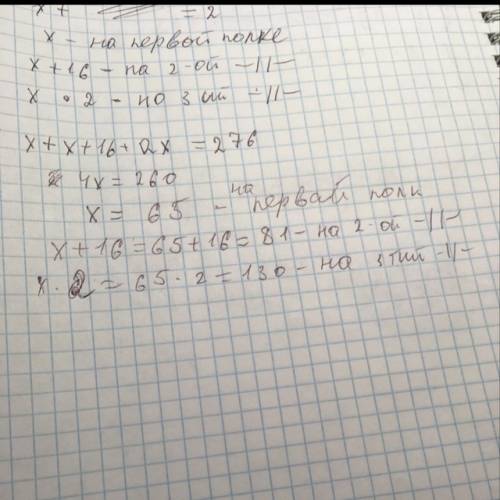 x + = 2
x - на первой полке
x + 16 - на 2-ой -11-
x • 2 - на 3 ий -11-
x + x + 16 + 2x = 276
4x = 260
x = 65 - на первай полк
x + 16 = 65 + 16 = 81 - на 2-ой -11-
x · 2 = 65 · 2 = 130 - на 3 тий -11-